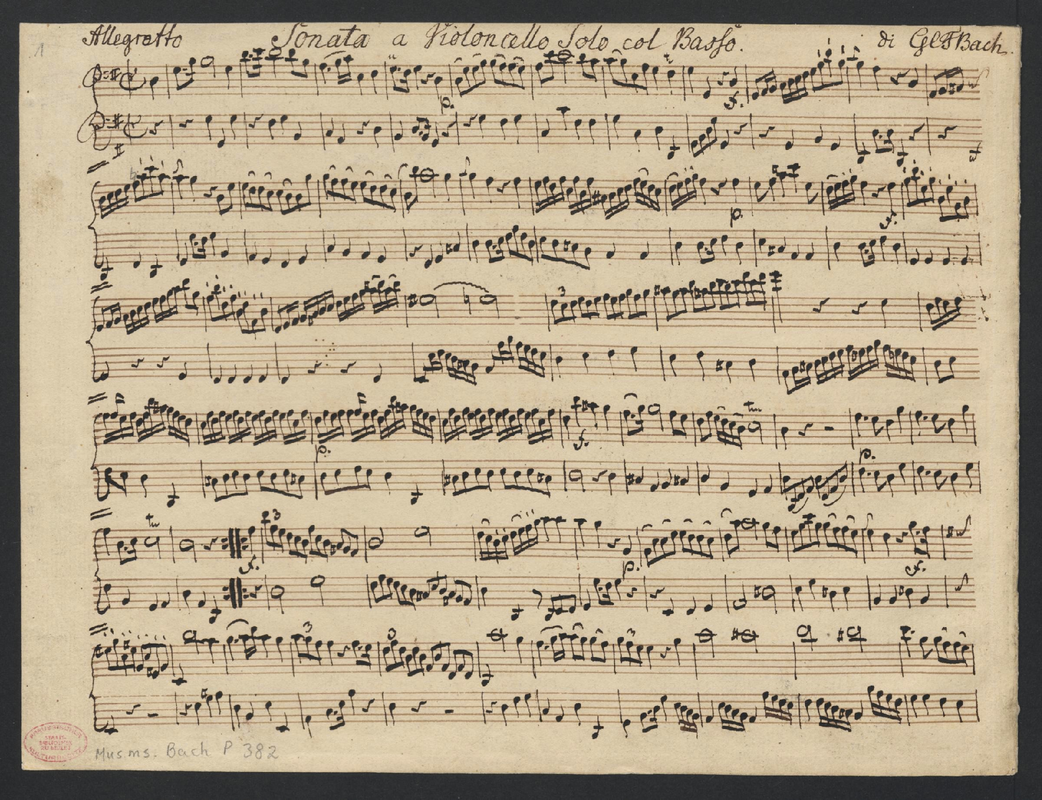 1 Allegretto Sonata a Violoncello Solo col Basso. di
p. f.
p. f.
3
p. f. tr p.
tr f. 3 p. f.
3 3
Mus.ms. Bach P 382